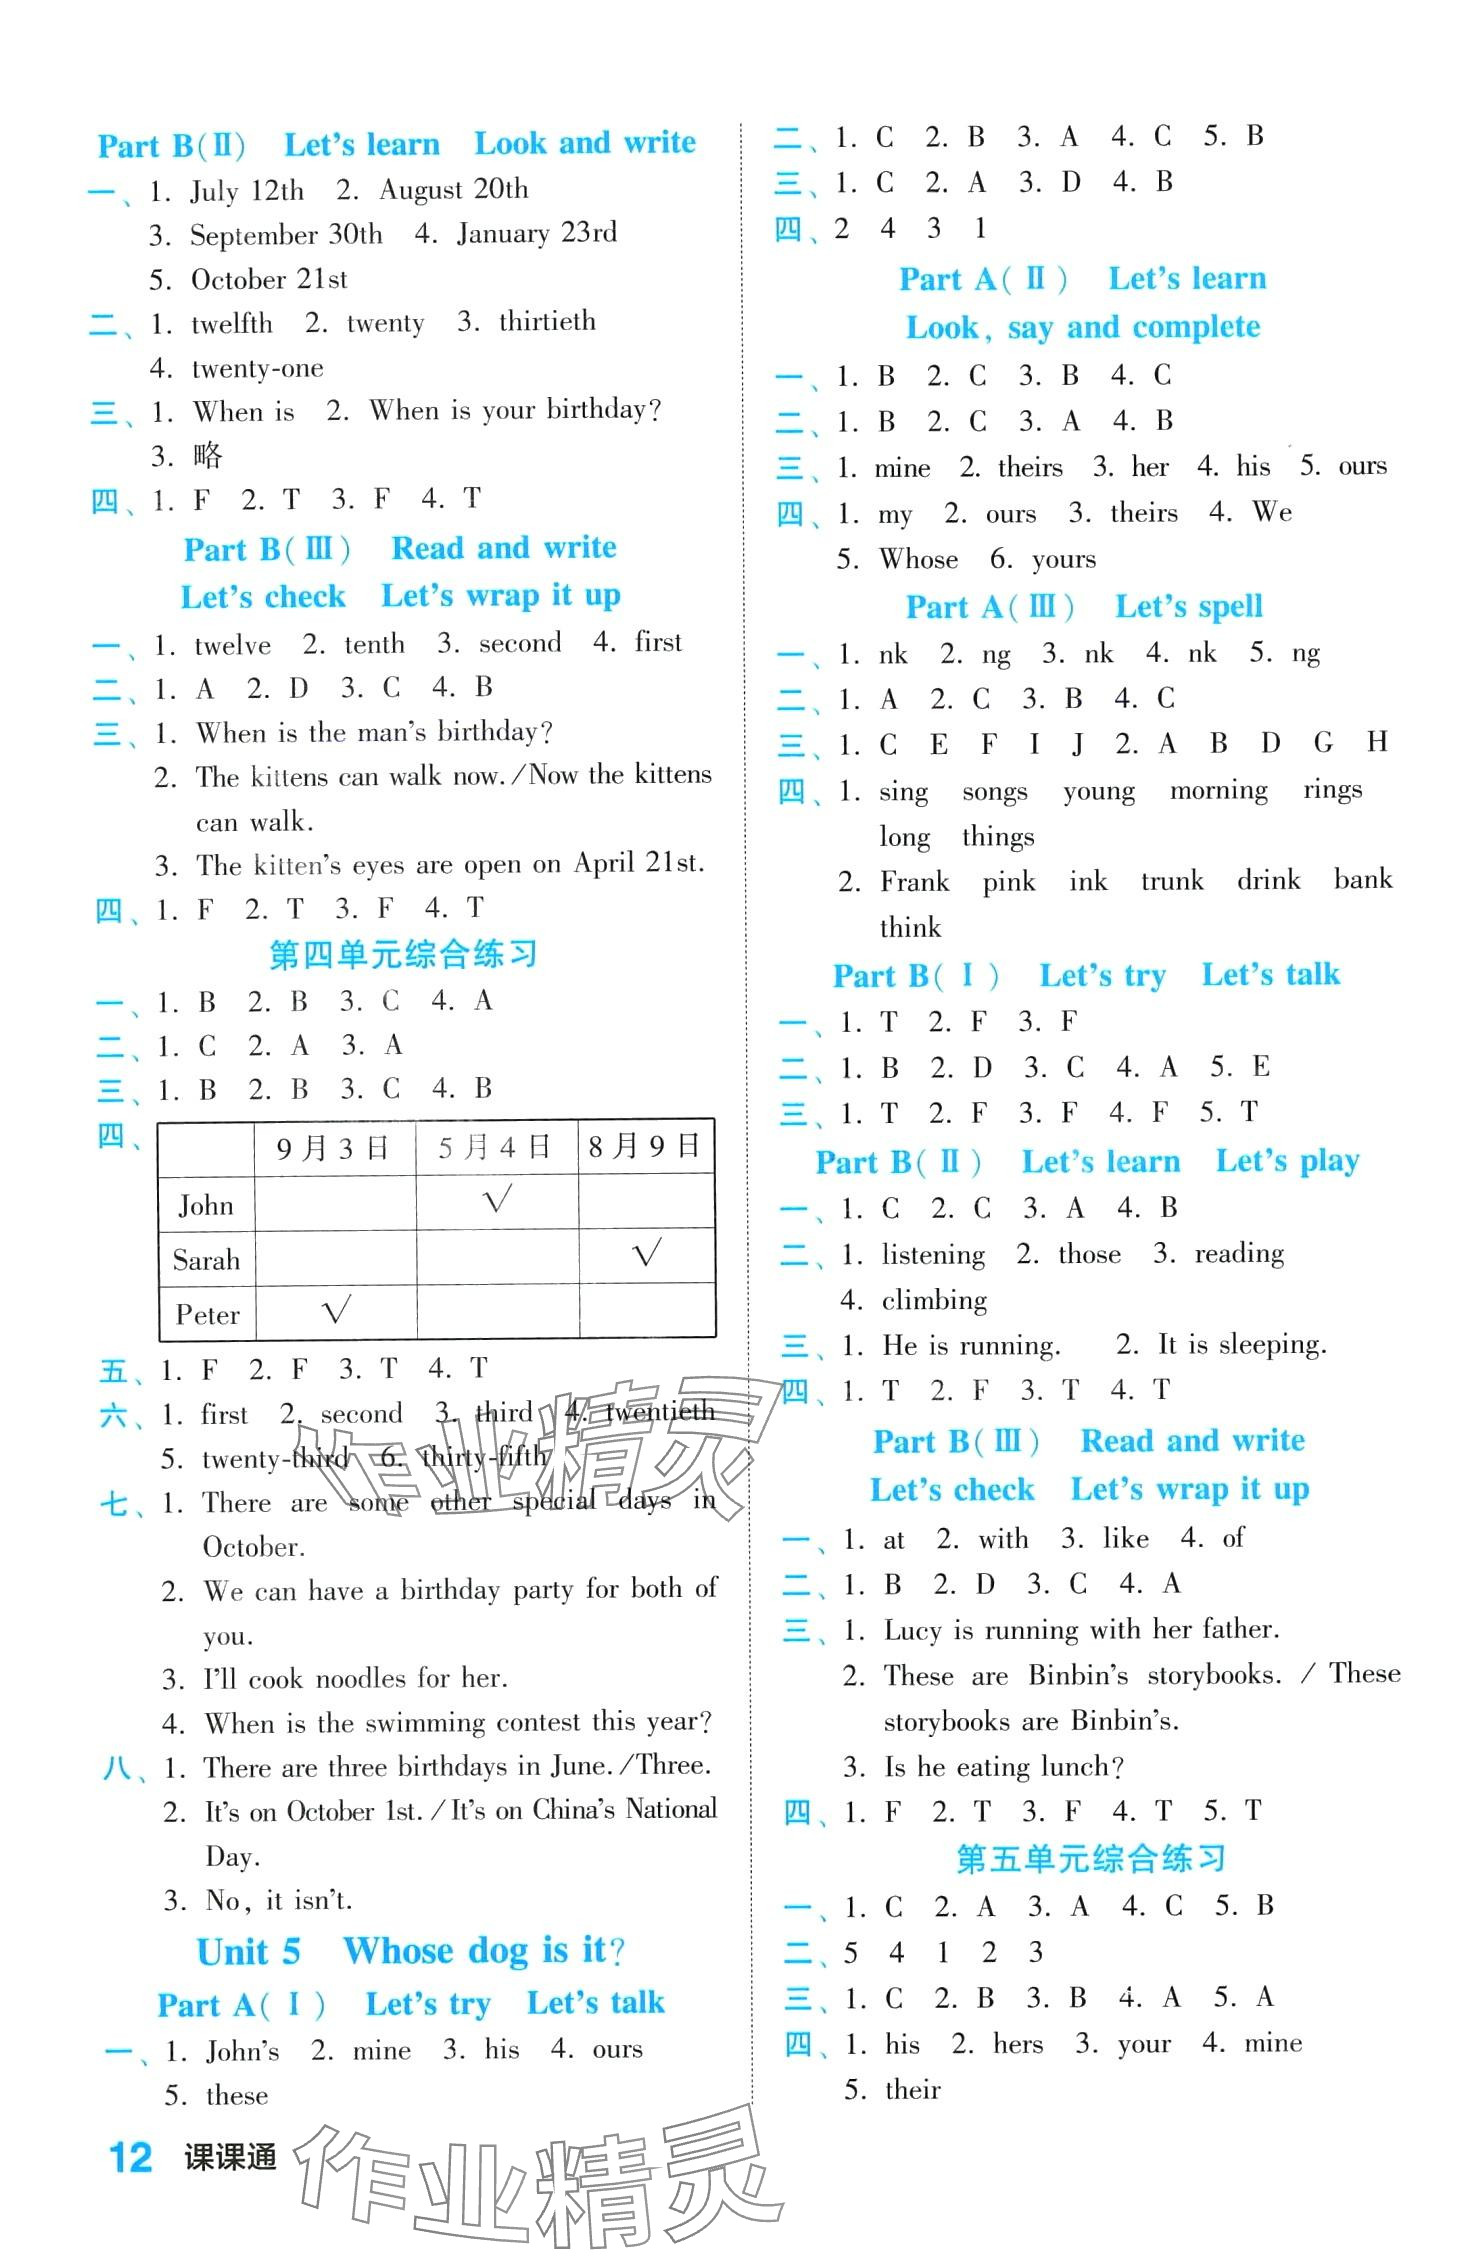 Part B(Ⅱ) Let's learn Look and write
一、1. July 12th 2. August 20th
3. September 30th 4. January 23rd
5. October 21st
二、1. twelfth 2. twenty 3. thirtieth
4. twenty-one
三、1. When is 2. When is your birthday?
3. 略
四、1. F 2. T 3. F 4. T
Part B(Ⅲ) Read and write
Let's check Let's wrap it up
一、1. twelve 2. tenth 3. second 4. first
二、1. A 2. D 3. C 4. B
三、1. When is the man's birthday?
2. The kittens can walk now./Now the kittens
can walk.
3. The kitten's eyes are open on April 21st.
四、1. F 2. T 3. F 4. T
第四单元综合练习
一、1. B 2. B 3. C 4. A
二、1. C 2. A 3. A
三、1. B 2. B 3. C 4. B
四、
9月3日 5月4日 8月9日
John √
Sarah √
Peter √
五、1. F 2. F 3. T 4. T
六、1. first 2. second 3. third 4. twentieth
5. twenty-third 6. thirty-fifth
七、1. There are some other special days in
October.
2. We can have a birthday party for both of
you.
3. I'll cook noodles for her.
4. When is the swimming contest this year?
八、1. There are three birthdays in June./Three.
2. It's on October 1st./It's on China's National
Day.
3. No, it isn't.
Unit 5 Whose dog is it?
Part A(Ⅰ) Let's try Let's talk
一、1. John's 2. mine 3. his 4. ours
5. these
二、1. C 2. B 3. A 4. C 5. B
三、1. C 2. A 3. D 4. B
四、2 4 3 1
Part A(Ⅱ) Let's learn
Look, say and complete
一、1. B 2. C 3. B 4. C
二、1. B 2. C 3. A 4. B
三、1. mine 2. theirs 3. her 4. his 5. ours
四、1. my 2. ours 3. theirs 4. We
5. Whose 6. yours
Part A(Ⅲ) Let's spell
一、1. nk 2. ng 3. nk 4. nk 5. ng
二、1. A 2. C 3. B 4. C
三、1. C E F I J 2. A B D G H
四、1. sing songs young morning rings
long things
2. Frank pink ink trunk drink bank
think
Part B(Ⅰ) Let's try Let's talk
一、1. T 2. F 3. F
二、1. B 2. D 3. C 4. A 5. E
三、1. T 2. F 3. F 4. F 5. T
Part B(Ⅱ) Let's learn Let's play
一、1. C 2. C 3. A 4. B
二、1. listening 2. those 3. reading
4. climbing
三、1. He is running. 2. It is sleeping.
四、1. T 2. F 3. T 4. T
Part B(Ⅲ) Read and write
Let's check Let's wrap it up
一、1. at 2. with 3. like 4. of
二、1. B 2. D 3. C 4. A
三、1. Lucy is running with her father.
2. These are Binbin's storybooks. / These
storybooks are Binbin's.
3. Is he eating lunch?
四、1. F 2. T 3. F 4. T 5. T
第五单元综合练习
一、1. C 2. A 3. A 4. C 5. B
二、5 4 1 2 3
三、1. C 2. B 3. B 4. A 5. A
四、1. his 2. hers 3. your 4. mine
5. their
12 课课通
作业精灵
作业精灵